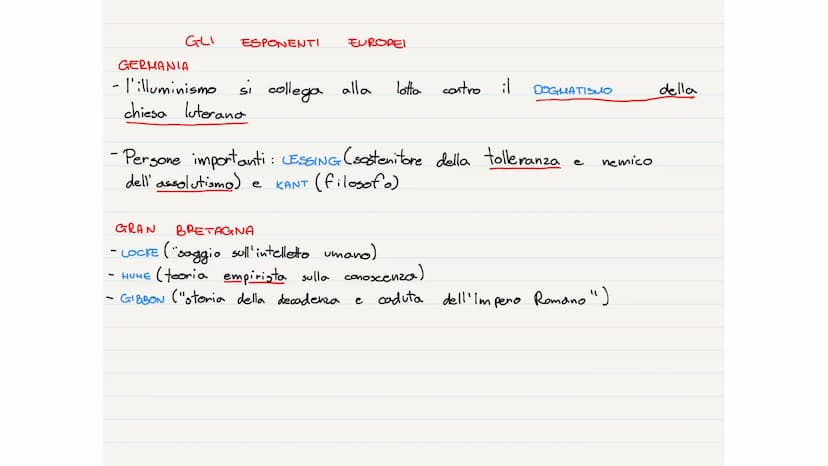 GLI ESPONENTI EUROPEI
GERMANIA
- l'illuminismo si collega alla lotta contro il DOGMATISMO della
chiesa luterana
- Persone importanti: LESSING (sostenitore della tolleranza e nemico
dell'assolutismo) e KANT (filosofo)
GRAN BRETAGNA
- LOCKE ("saggio sull'intelletto umano)
- HUME (teoria empirista sulla conoscenza)
- GIBBON ("storia della decadenza e caduta dell'Impero Romano")